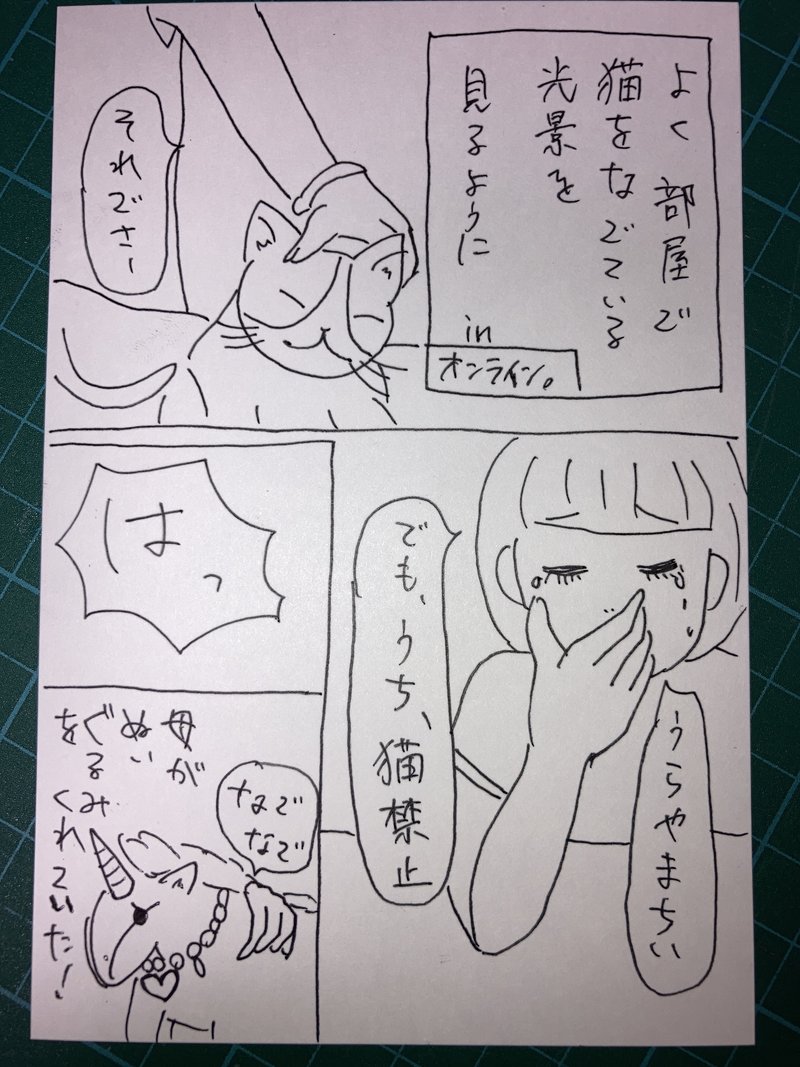 よく部屋で
猫をなでている
光景を
見るように in
オンライン。
それでさー
うらやまちい
でも、うち、猫禁止
はっ
母が
ぬい
ぐるみ
をくれていた!
なで
なで